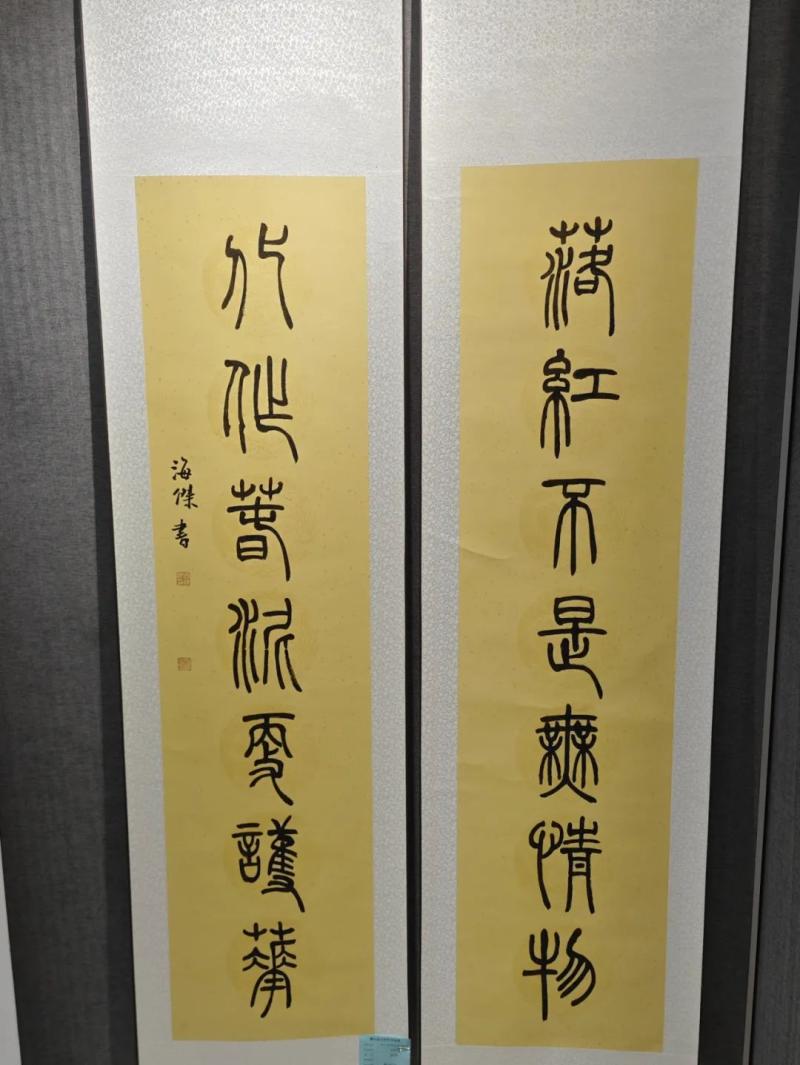 落紅不是無情物
化作春泥更護華
海傑書